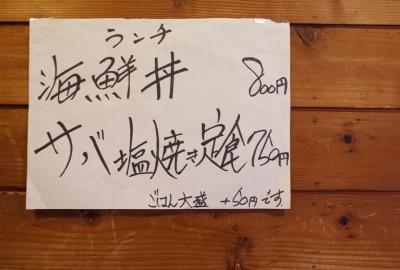 ランチ
海鮮丼 800円
サバ塩焼き定食 750円
ごはん大盛 +50円です.